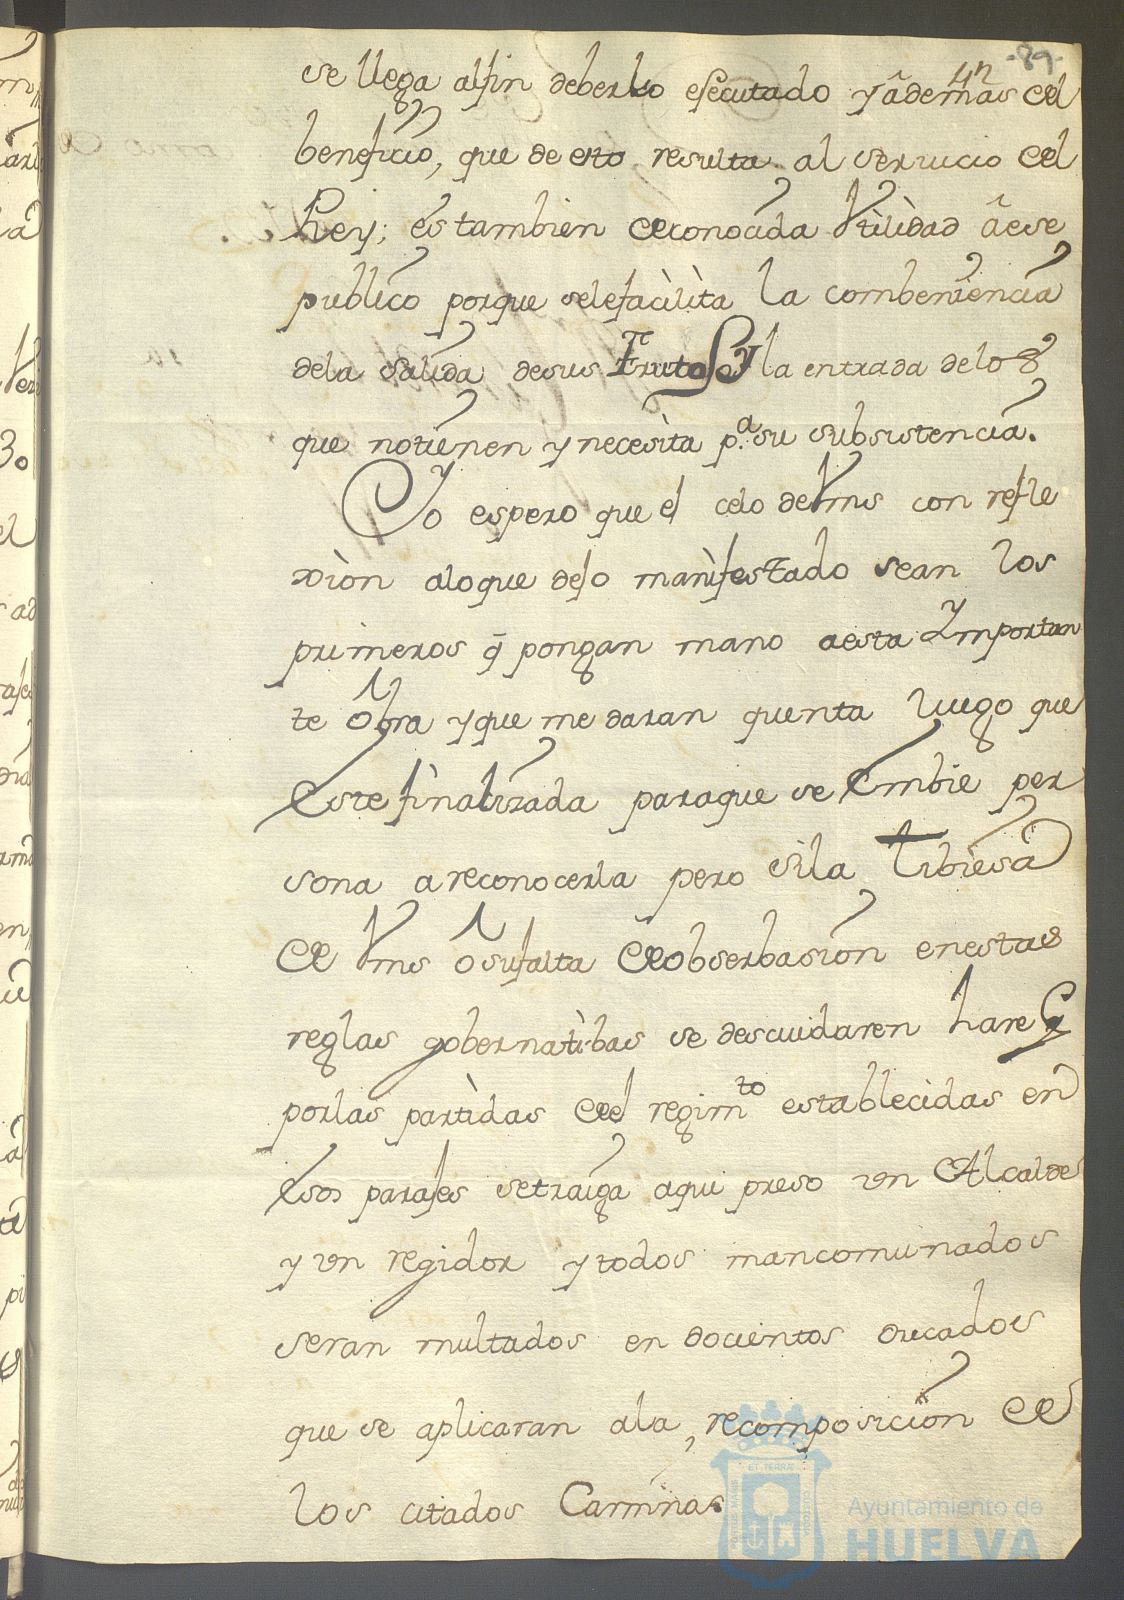 -89-
4n
se llega alfin deberlo efecutado y âdemas del
beneficio, que de esto resulta al serucio del
Rey; es tambien deconocida Vtilidad âese
publico porque selefacilita la combeniencia
dela salida desus Frutos y la entrada delos
que notienen y necesita p.ª su subsistencia.
Yo espero que el celo deVms con refle
xion aloque dejo manifestado sean los
primeros q̃ pongan mano aesta Ymportan
te Obra yque me daran quenta luego que
Este finalizada paraque se Embie per
sona a reconocerla pero sila tibiesa
de Vms ò sufalta deobserbasion enestas
reglas gobernatibas se descuidaren hare q
porlas partidas del regim.to establecidas en
Esos parajes setraiga aqui preso un Alcalde
y un regidor y todos mancomunados
seran multados en docientos ducados
que se aplicaran ala recomposicion de
los citados Caminos.
Ayuntamiento de
HUELVA